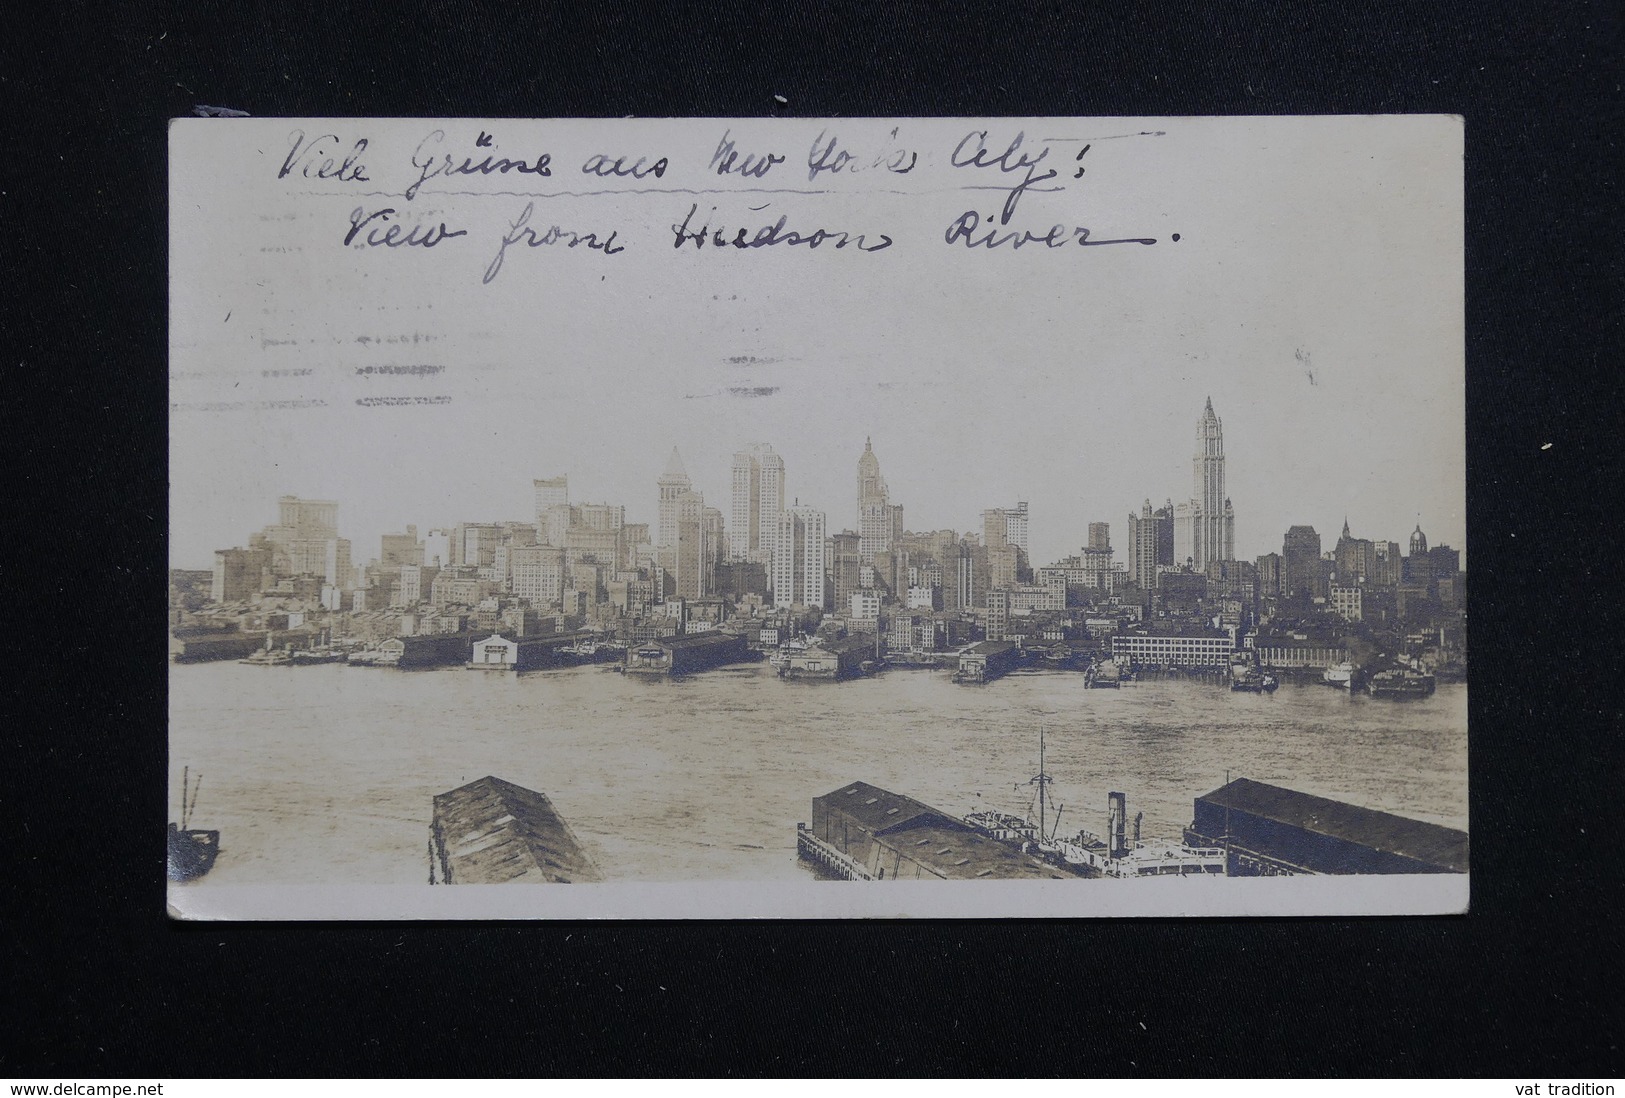 Viele Grüsse aus New York City!
View from Hudson River.
www.delcampe.net
vat tradition